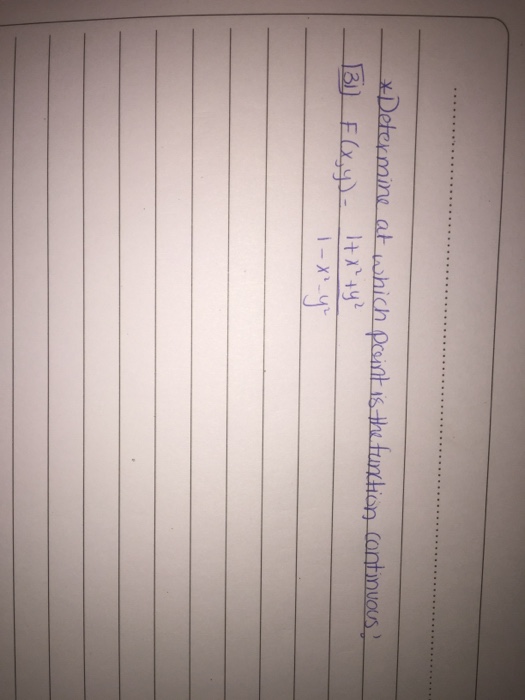 *Determine at which point is the function continuous,
31) F(x,y) = 1+x²+y²
1-x²-y²